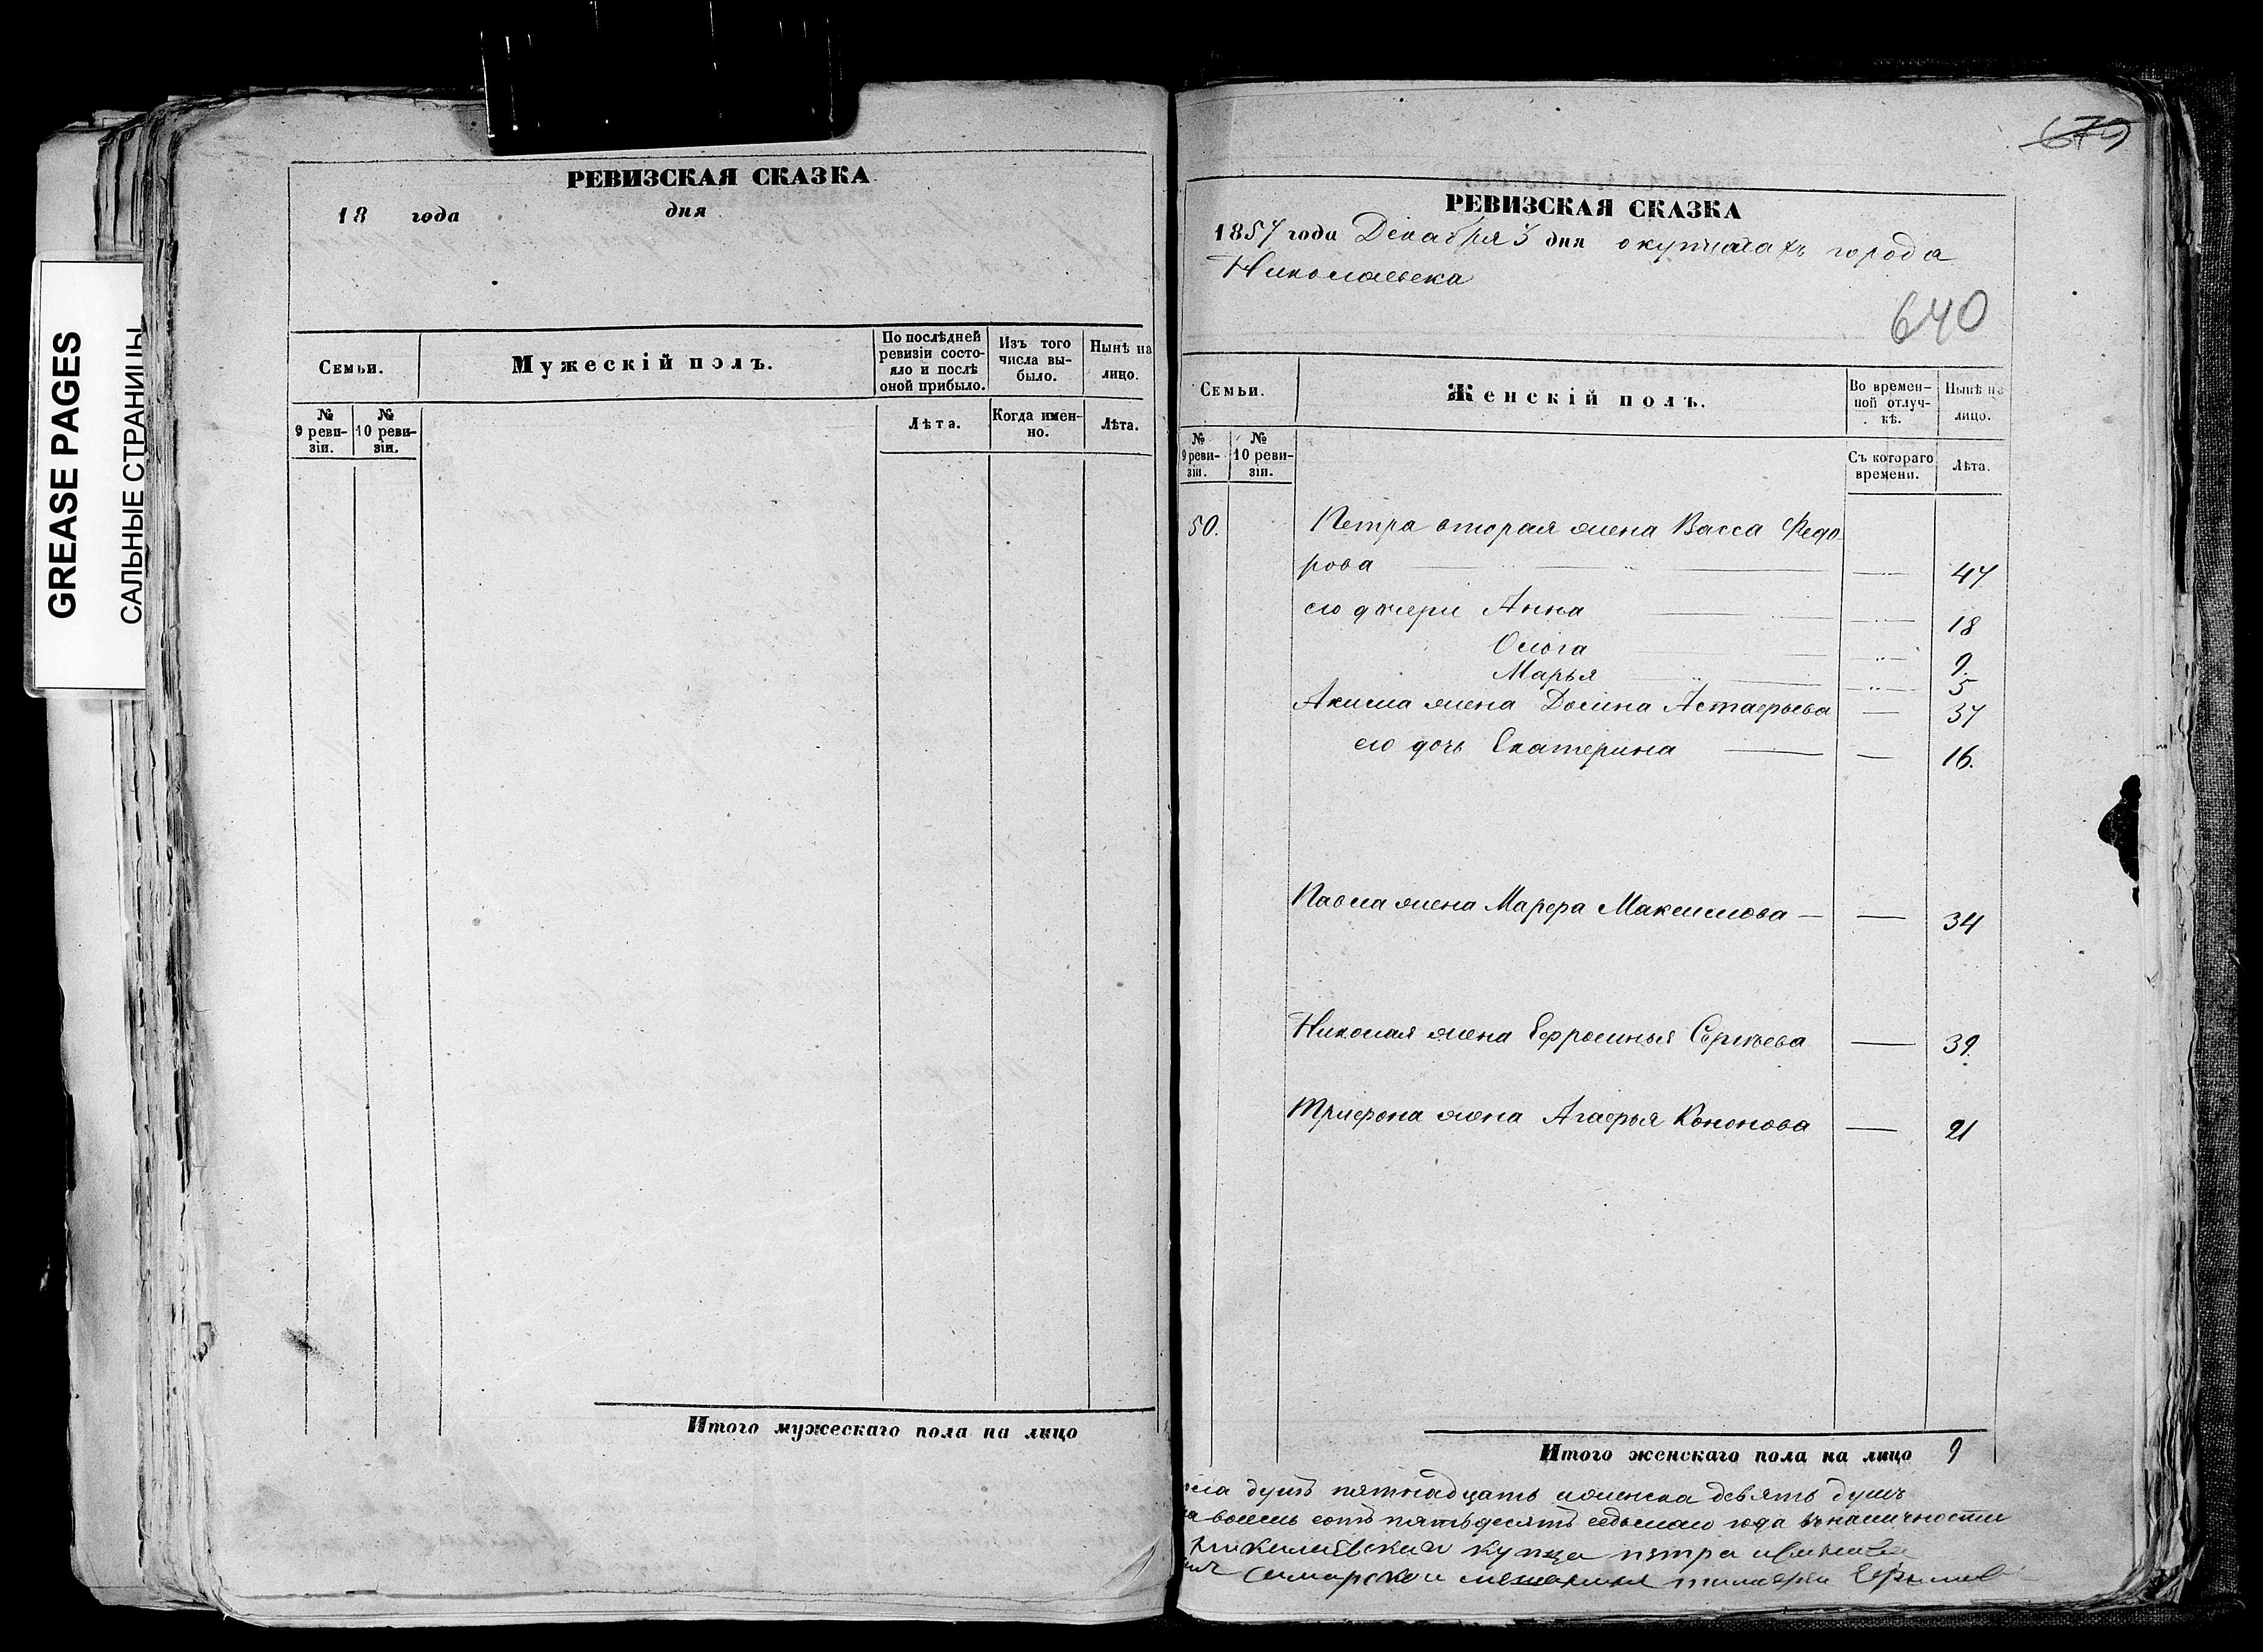 GREASE PAGES
САЛЬНЫЕ СТРАНИЦЫ
РЕВИЗСКАЯ СКАЗКА
18 года дня
Семьи.
Мужескій полъ.
По послѣдней ревизіи состо-
яло и послѣ оной прибыло.
Изъ того числа вы-
было.
Нынѣ на лицо.
№ 9 реви-
зіи.
№ 10 реви-
зіи.
Лѣта.
Когда имен-
но.
Лѣта.
Итого мужескаго пола на лицо
679
РЕВИЗСКАЯ СКАЗКА
1857 года Декабря 3 дня о купцахъ города
Николаевска
640
Семьи.
Женскій полъ.
Во времен-
ной отлуч-
кѣ.
Нынѣ на
лицо.
№ 9 реви-
зіи.
№ 10 реви-
зіи.
Съ котораго
времени.
Лѣта.
50. Петра вторая жена Васса Федо
рова 47
его дочери Анна 18
Ольга 9.
Марья 5
Акима жена Домна Астафьева 37
его дочь Екатерина 16.
Павла жена Марфа Максимова 34
Николая жена Ефросинья Сергѣева 39.
Трифона жена Агафья Кононова 21
Итого женскаго пола на лицо 9
душъ пятнадцать женска девять душъ
восемь сотъ пятьдесятъ седьмаго года въ наличности
купца петра
самарской тимофей Ефимов